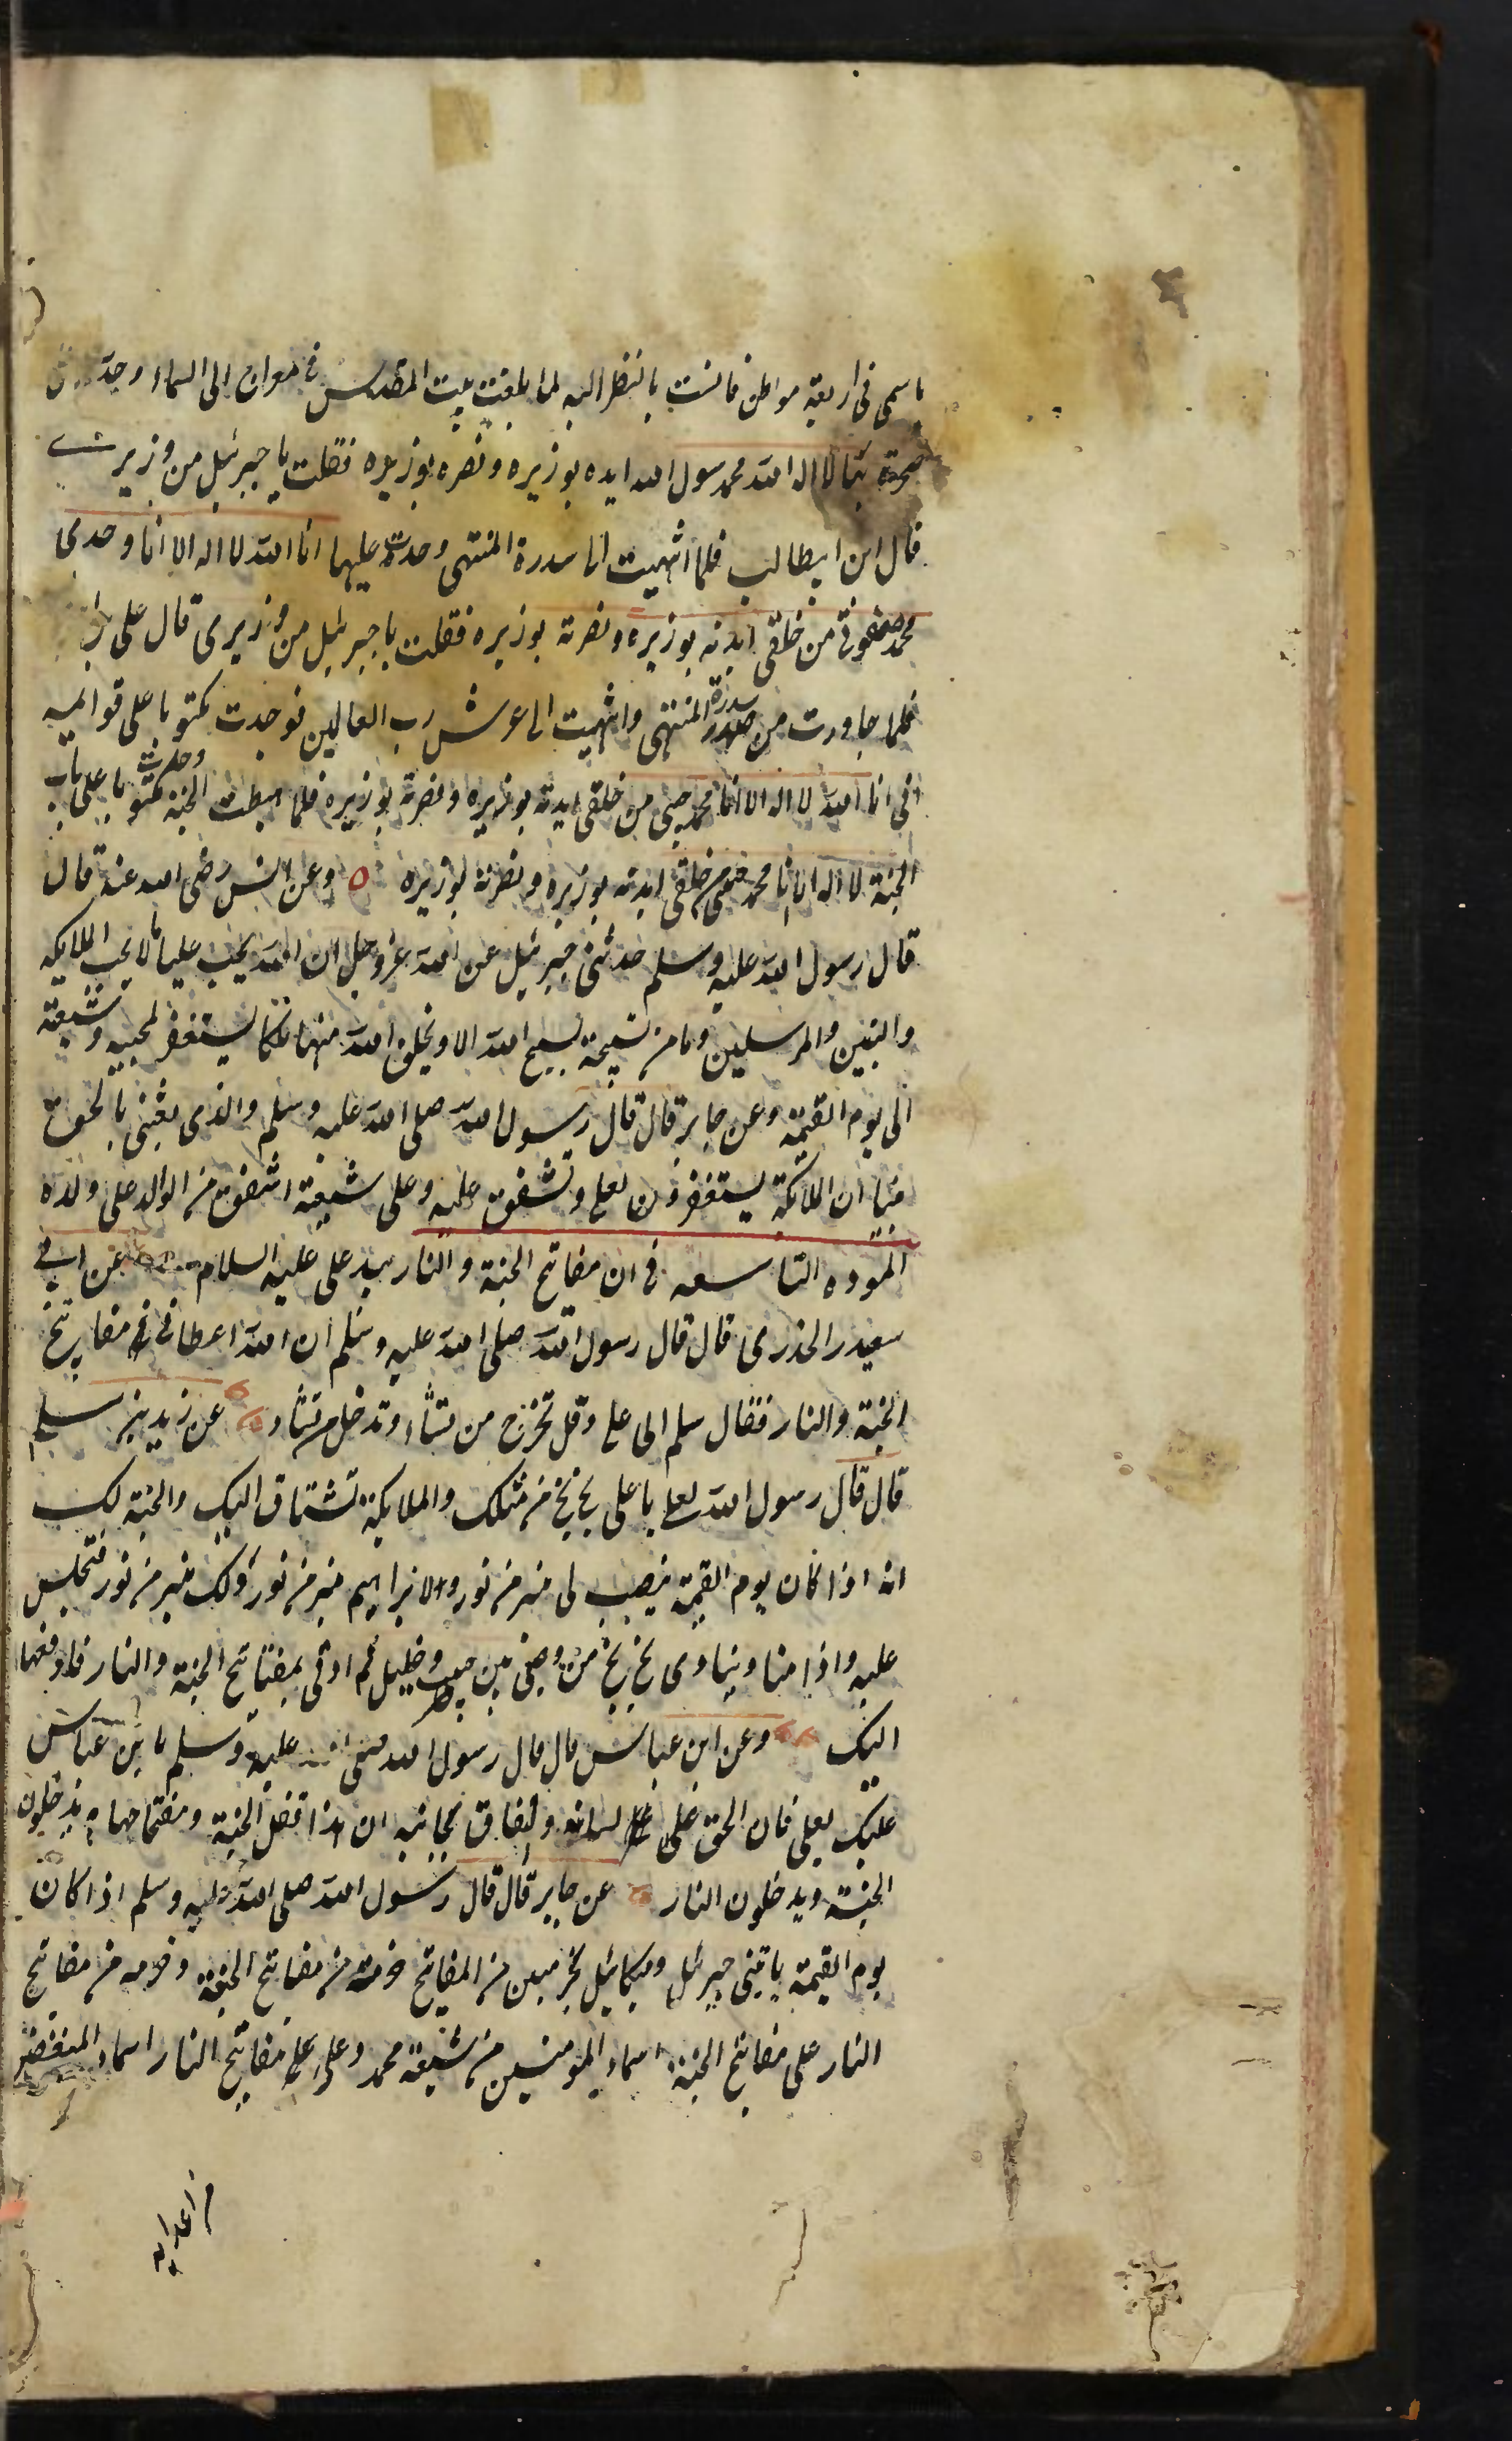 باسمی فی اربعة مواطن فانست بالنظر الیه لما بلغت بیت المقدس فی معراج الی السماء وجدت
صخرة بها لا اله الا الله محمد رسول الله ایده بوزیره ونصره بوزیره فقلت یا جبرئیل من وزیری
قال ابن ابیطالب فلما انتهیت الی سدرة المنتهی وجدت علیها انا الله لا اله الا انا وحدی
محمد صفوتی من خلقی ایدته بوزیره ونصرته بوزیره فقلت یا جبرئیل من وزیری قال علی
فلما جاورت من سدرة المنتهی وانتهیت الی عرش رب العالمین فوجدت مکتوبا علی قوائمه
انی انا الله لا اله الا انا محمد حبیبی من خلقی ایدته بوزیره ونصرته بوزیره فلما هبطت الجنة وجدت مکتوبا علی باب
الجنة لا اله الا انا محمد صفوتی من خلقی ایدته بوزیره ونصرته بوزیره ٥ وعن انس رضی الله عنه قال
قال رسول الله علیه وسلم حدثنی جبرئیل عن الله عز وجل ان الله یحب علیا ما لا یحب الملایکه
والنبین والمرسلین وما من تسبیحة یسبح الله الا ویخلق الله منها ملکا یستغفر لمحبیه وشیعته
الی یوم القیمة وعن جابر قال قال رسول الله صلی الله علیه وسلم والذی بعثنی بالحق
نبیا ان الملایکة یستغفرون لعلی وتشفق علیه وعلی شیعته اشفق من الوالد علی ولده
المودة التاسعه فی ان مفاتح الجنة والنار بید علی علیه السلام عن ابی
سعید الخدری قال قال رسول الله صلی الله علیه وسلم ان الله اعطانی مفاتیح
الجنة والنار فقال سلم الی علی وقل تخرج من تشاء وتدخل من تشاء عن زید بن اسلم
قال قال رسول الله لعلی یا علی بخ بخ من مثلک والملایکة تشتاق الیک والجنة لک
انه اذا کان یوم القیمة ینصب لی منبر من نور ولابراهیم منبر من نور ولک منبر من نور فتجلس
علیه واذا مناد ینادی بخ بخ من وصی بین حبیب وخلیل ثم اوتی بمفتایح الجنة والنار فادفعها
الیک وعن ابن عباس قال قال رسول الله صلی الله علیه وسلم یا بن عباس
علیک بعلی فان الحق علی لسانه والنفاق مجانبه ان هذا قفل الجنة ومفتاحها به یدخلون
الجنة ویدخلون النار عن جابر قال قال رسول الله صلی الله علیه وسلم اذا کان
یوم القیمة یاتینی جبرئیل ومیکائیل بحزمین من المفاتیح حزمة من مفاتیح الجنة وحزمه من مفاتیح
النار علی مفاتیح الجنة اسماء المومنین من شیعة محمد وعلی وعلی مفاتیح النار اسماء المبغضین
من اعدایه